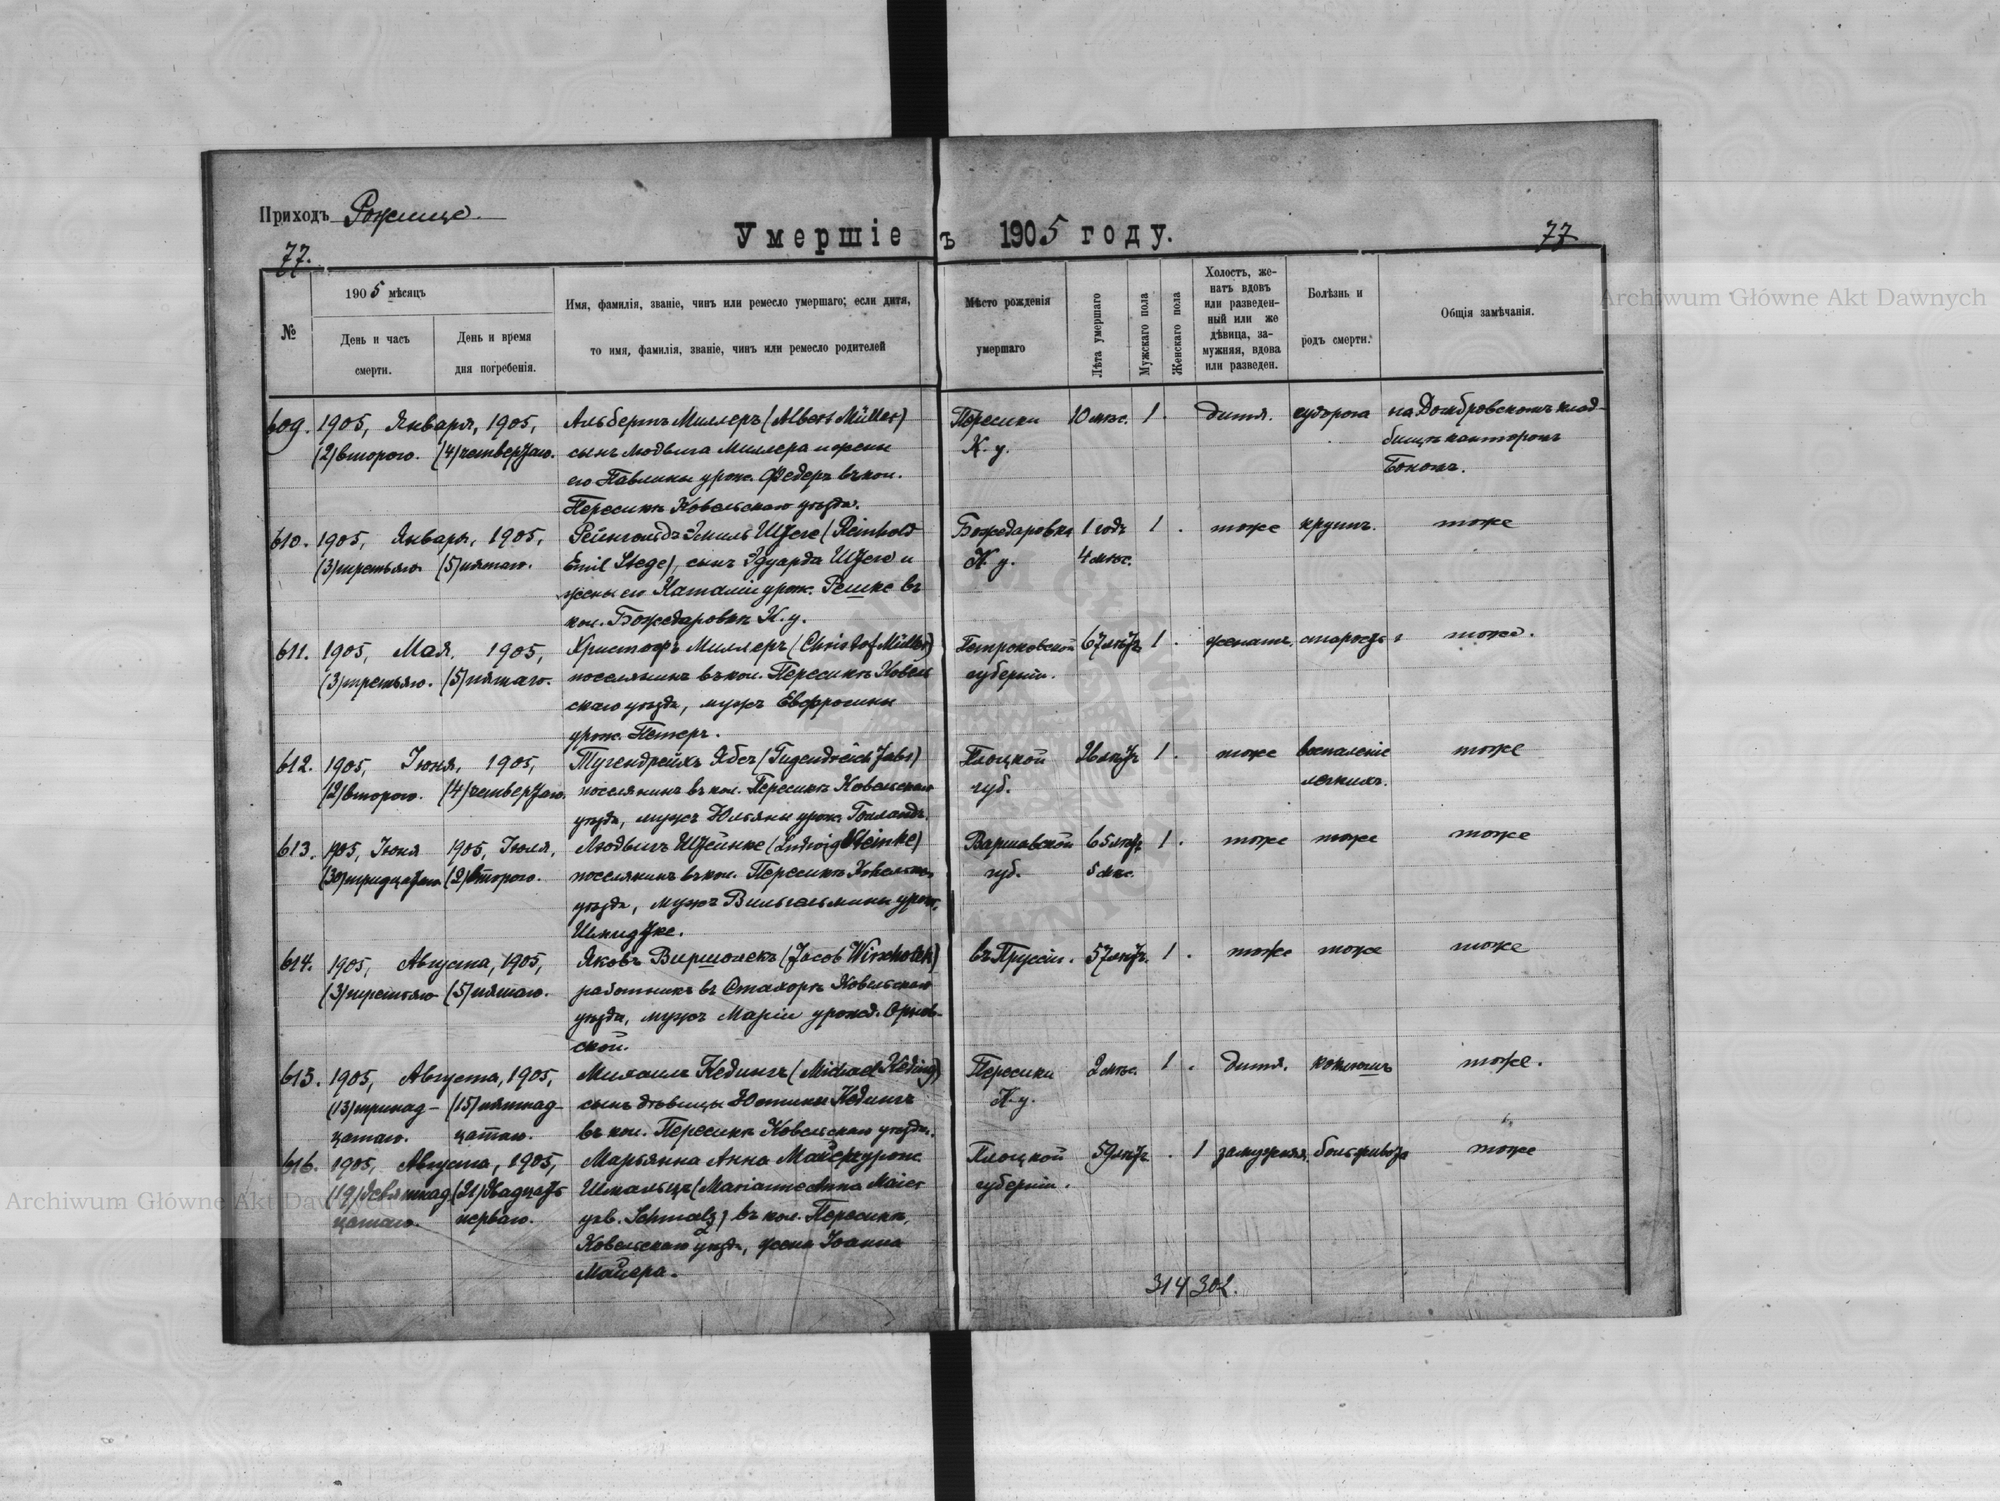 Приходъ Рожище
Умершіе въ 1905 году.
77.
77
№
1905 мѣсяцъ
День и часъ смерти.
День и время дня погребенія.
Имя, фамилія, званіе, чинъ или ремесло умершаго; если дитя,
то имя, фамилія, званіе, чинъ или ремесло родителей
Мѣсто рожденія
умершаго
Лѣта умершаго
Мужскаго пола
Женскаго пола
Холостъ, же-
натъ вдовъ
или разведен-
ный или же
дѣвица, за-
мужняя, вдова
или разведен.
Болѣзнь и
родъ смерти.
Общія замѣчанія.
609. 1905, Января, 1905, Альбертъ Миллеръ (Albert Müller) Пересики 10 мѣс. 1. дитя. судорога на Домбровскомъ клад-
(2) второго. (4) четвертаго. сынъ Людвига Миллера и жены К. у. бищѣ канторомъ
его Павлины урож. Федеръ въ кол. Бономъ.
Пересикѣ Ковельскаго уѣзда.
610. 1905, Января, 1905, Рейнгольдъ Эмиль Штеге (Reinhold Божедаровка 1 годъ 1. тоже крупъ. тоже
(3) третьяго (5) пятаго. Emil Stege), сынъ Эдуарда Штеге и К. у. 4 мѣс.
жены его Наталіи урож. Решке въ
кол. Божедаровкѣ К. у.
611. 1905, Мая, 1905, Христофъ Миллеръ (Christof Müller) Петроковской 67 лѣтъ 1. женатъ. старость тоже.
(3) третьяго. (5) пятаго. поселянинъ въ кол. Пересикѣ Ковель губерніи.
скаго уѣзда, мужъ Евфросины
урож. Петеръ.
612. 1905, Іюня, 1905, Тугендрейхъ Ябсъ (Tugendreich Jabs) Плоцкой лѣтъ 1. тоже воспаленіе тоже
(2) второго. (4) четвертаго. поселянинъ въ кол. Пересикѣ Ковельскаго губ. легкихъ.
уѣзда, мужъ Юльяны урож. Голландъ.
613. 1905, Іюня 1905, Іюля, Людвигъ Штейнке (Ludwig Steinke) Варшавской 65 лѣтъ 1. тоже тоже тоже
(30) тридцатаго (2) второго. поселянинъ въ кол. Пересикѣ Ковельскаго губ. 5 мѣс.
уѣзда, мужъ Вильгельмины урож.
614. 1905, Августа, 1905, Яковъ Виршолекъ (Jacob Wirscholek) въ Пруссіи. 57 лѣтъ. 1. тоже тоже тоже
(3) третьяго (5) пятаго. работникъ въ Стахорѣ Ковельскаго
уѣзда, мужъ Маріи урожд.
ской.
615. 1905, Августа, 1905, Михаилъ Кедингъ (Michael Keding) Пересики 2 мѣс. 1. дитя. коклюшъ тоже.
(13) тринад- (15) пятнад- сынъ дѣвицы Юстины Кедингъ К. у.
цатаго. цатаго. въ кол. Пересикѣ Ковельскаго уѣзда.
616. 1905, Августа, 1905, Марьянна Анна Майеръ урож. Плоцкой 59 лѣтъ . 1 замужняя. тоже
(19) девятнад (21) двадцать Шмальцъ (Marianne Anna Maier губерніи.
цатаго. перваго. geb. Schmalz) въ кол. Пересикѣ,
Ковельскаго уѣзда, жена Іоанна
Майера.
314 302.
Archiwum Główne Akt Dawnych
Archiwum Główne Akt Dawnych